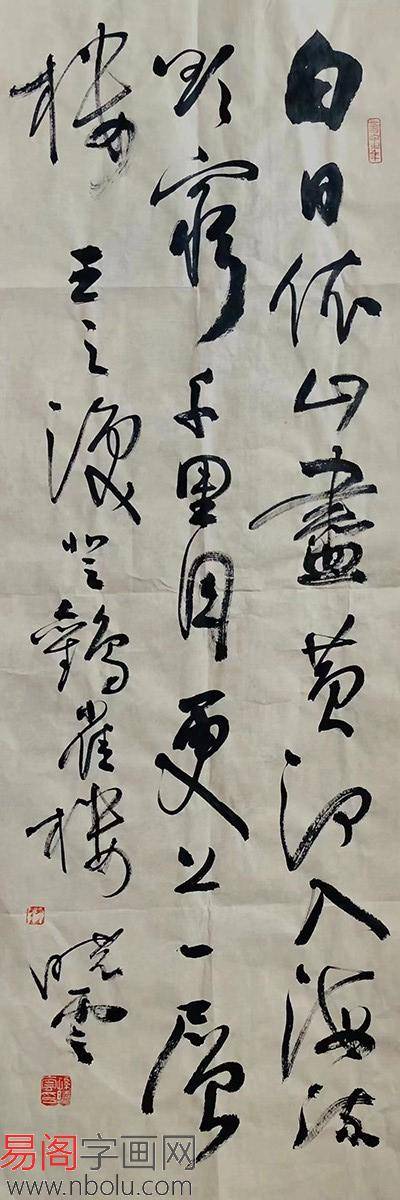 白日依山盡黄河入海流
欲窮千里目更上一層
樓 王之渙登鸛雀樓 曉雲
易阁字画网
www.nbolu.com